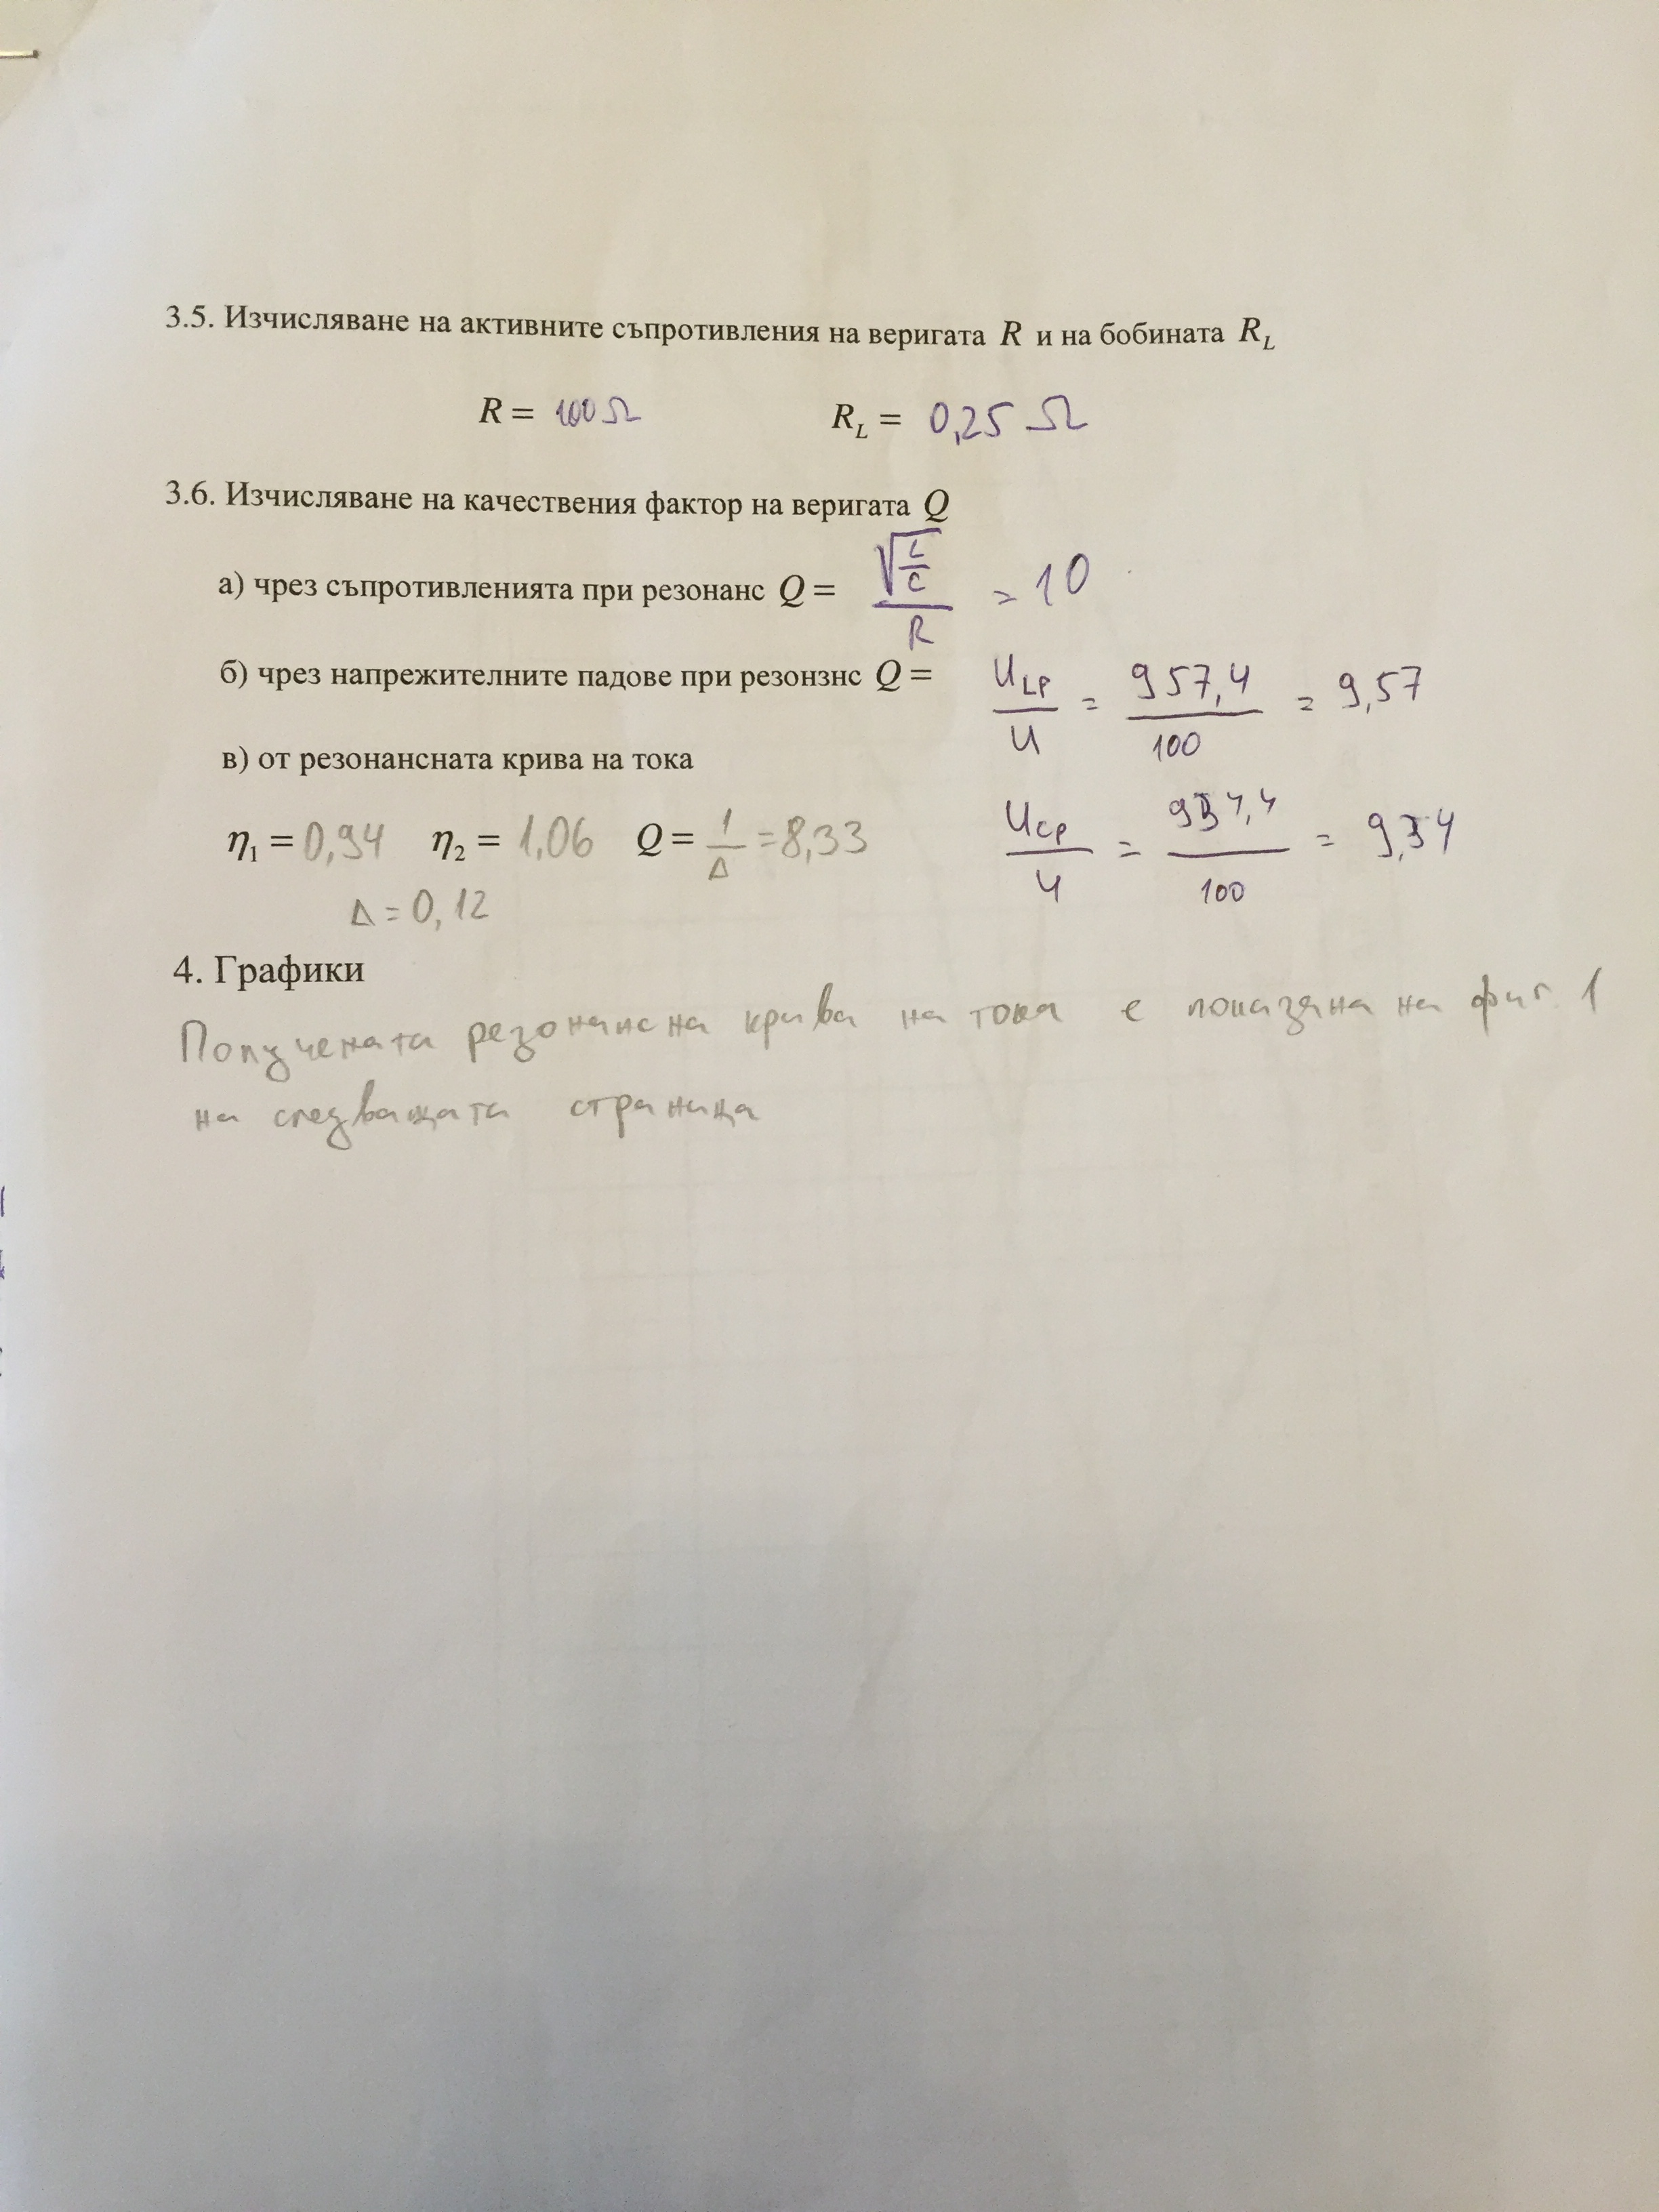 3.5. Изчисляване на активните съпротивления на веригата R и на бобината R_L
R = 100 Ω R_L = 0,25 Ω
3.6. Изчисляване на качествения фактор на веригата Q
а) чрез съпротивленията при резонанс Q = √(L/C) / R = 10
б) чрез напрежителните падове при резонзнс Q = U_LP / U = 957,4 / 100 = 9,57
в) от резонансната крива на тока
η₁ = 0,94 η₂ = 1,06 Q = 1/Δ = 8,33 U_CP / U = 934,4 / 100 = 9,34
Δ = 0,12
4. Графики
Получената резонансна крива на тока е показана на фиг. 1
на следващата страница